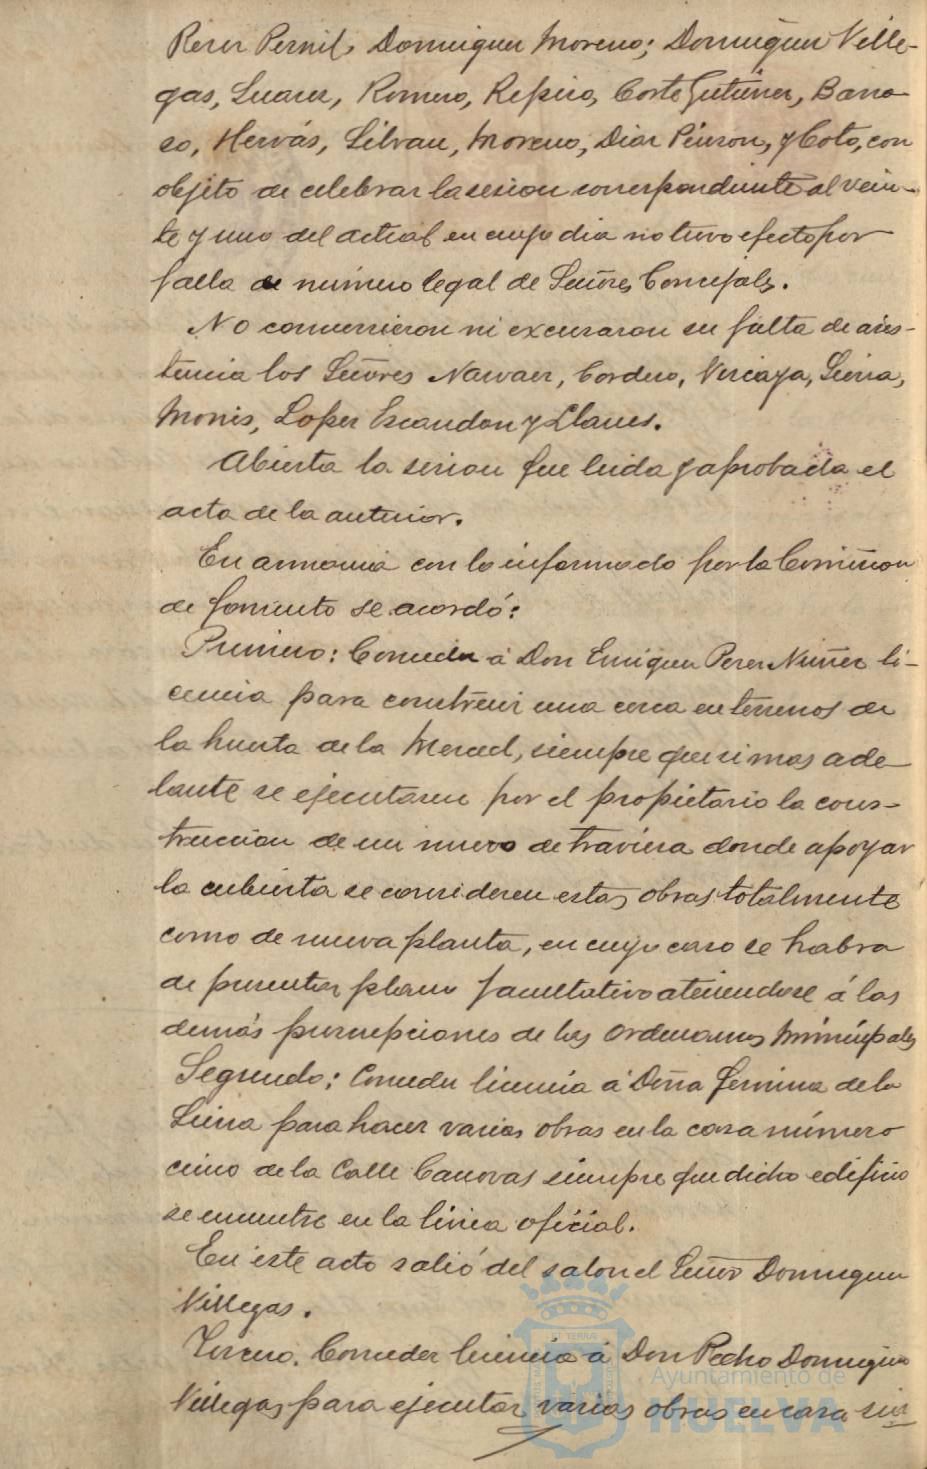 Perez Pernil, Dominguez Moreno; Dominguez Ville-
gas, Suarez, Romero, Repiso, Corte Gutierrez, Barro-
so, Hervás, Silvan, Moreno, Diaz Pinzon, y Coto, con
objeto de celebrar la sesion correspondiente al vein-
te y uno del actual en cuyo dia no tuvo efecto por
falta de número legal de Señores Concejales.
No concurrieron ni excusaron su falta de asis-
tencia los Señores Narvaez, Cordero, Vizcaya, Sierra,
Monis, Lopez Escandon y Llanes.
Abierta la sesion fue leida y aprobada el
acta de la anterior.
En armonia con lo informado por la Comision
de fomento se acordó:
Primero: Conceder á Don Enrique Perez Nuñez li-
cencia para construir una cerca en terrenos de
la huerta de la Merced, siempre que si mas ade
lante se ejecutaren por el propietario la cons-
truccion de un muro de traviesa donde apoyar
la cubierta se consideren estas obras totalmente
como de nueva planta, en cuyo caso se habra
de presentar plano facultativo ateniendose á las
demás prescripciones de las Ordenanzas Municipales
Segundo: Conceder licencia á Doña Fermina de la
Sierra para hacer varias obras en la casa número
cinco de la Calle Canovas siempre que dicho edificio
se encuentre en la linea oficial.
En este acto salió del salon el Señor Dominguez
Villegas.
Tercero. Conceder licencia á Don Pedro Dominguez
Villegas para ejecutar varias obras en casa sin
Ayuntamiento de
HUELVA